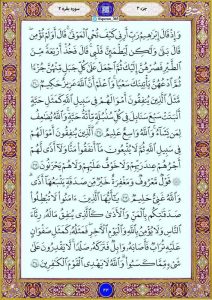 جزء ۳
سوره بقره ۲
وَإِذْ قَالَ إِبْرَٰهِـۧمُ رَبِّ أَرِنِي كَيْفَ تُحْيِ الْمَوْتَىٰ قَالَ أَوَلَمْ تُؤْمِن
قَالَ بَلَىٰ وَلَٰكِن لِّيَطْمَئِنَّ قَلْبِي قَالَ فَخُذْ أَرْبَعَةً مِّنَ
الطَّيْرِ فَصُرْهُنَّ إِلَيْكَ ثُمَّ اجْعَلْ عَلَىٰ كُلِّ جَبَلٍ مِّنْهُنَّ جُزْءًا
ثُمَّ ادْعُهُنَّ يَأْتِينَكَ سَعْيًا وَاعْلَمْ أَنَّ اللَّهَ عَزِيزٌ حَكِيمٌ ۲۶۰
مَّثَلُ الَّذِينَ يُنفِقُونَ أَمْوَٰلَهُمْ فِي سَبِيلِ اللَّهِ كَمَثَلِ حَبَّةٍ
أَنبَتَتْ سَبْعَ سَنَابِلَ فِي كُلِّ سُنبُلَةٍ مِّا۟ئَةُ حَبَّةٍ وَاللَّهُ يُضَٰعِفُ
لِمَن يَشَاءُ وَاللَّهُ وَٰسِعٌ عَلِيمٌ ۲۶۱ الَّذِينَ يُنفِقُونَ أَمْوَٰلَهُمْ فِي
سَبِيلِ اللَّهِ ثُمَّ لَا يُتْبِعُونَ مَا أَنفَقُوا مَنًّا وَلَا أَذًى لَّهُمْ
أَجْرُهُمْ عِندَ رَبِّهِمْ وَلَا خَوْفٌ عَلَيْهِمْ وَلَا هُمْ يَحْزَنُونَ ۲۶۲
قَوْلٌ مَّعْرُوفٌ وَمَغْفِرَةٌ خَيْرٌ مِّن صَدَقَةٍ يَتْبَعُهَا أَذًى
وَاللَّهُ غَنِيٌّ حَلِيمٌ ۲۶۳ يَٰأَيُّهَا الَّذِينَ ءَامَنُوا لَا تُبْطِلُوا
صَدَقَٰتِكُم بِالْمَنِّ وَالْأَذَىٰ كَالَّذِي يُنفِقُ مَالَهُ رِئَاءَ
النَّاسِ وَلَا يُؤْمِنُ بِاللَّهِ وَالْيَوْمِ الْءَاخِرِ فَمَثَلُهُ كَمَثَلِ صَفْوَانٍ
عَلَيْهِ تُرَابٌ فَأَصَابَهُ وَابِلٌ فَتَرَكَهُ صَلْدًا لَّا يَقْدِرُونَ عَلَىٰ
شَيْءٍ مِّمَّا كَسَبُوا وَاللَّهُ لَا يَهْدِي الْقَوْمَ الْكَٰفِرِينَ ۲۶۴
۴۴